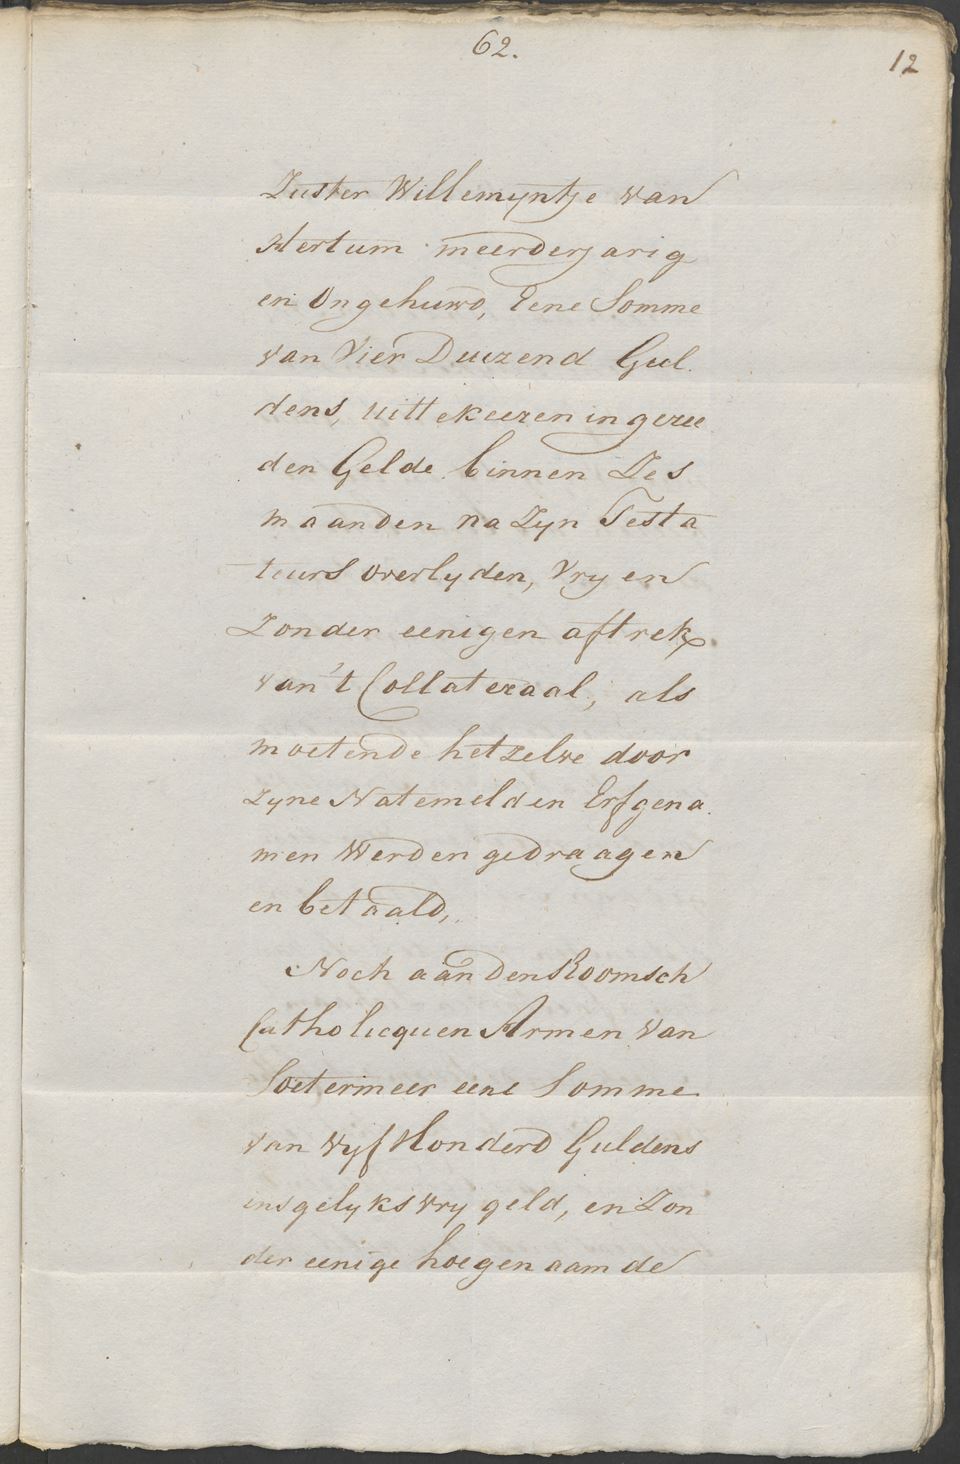 62.
12
Zuster Willemyntje van
Hertum meerderjarig
en Ongehuwd, Eene Somme
van Vier Duizend Gul.
dens, uittekeeren in geree
den Gelde binnen Zes
maanden na Zyn Testa
teurs overlyden, Vry en
Zonder eenigen aftrek
van 't Collateraal, als
moetende hetzelve door
zyne Natemelden Erfgena.
men Werden gedraagen
en betaald,
Noch aan den Roomsch
Catholicquen Armen van
Soetermeer eene Somme
van Vyf Honderd Guldens
insgelyks vry geld, en Zon
der eenige hoegenaamde